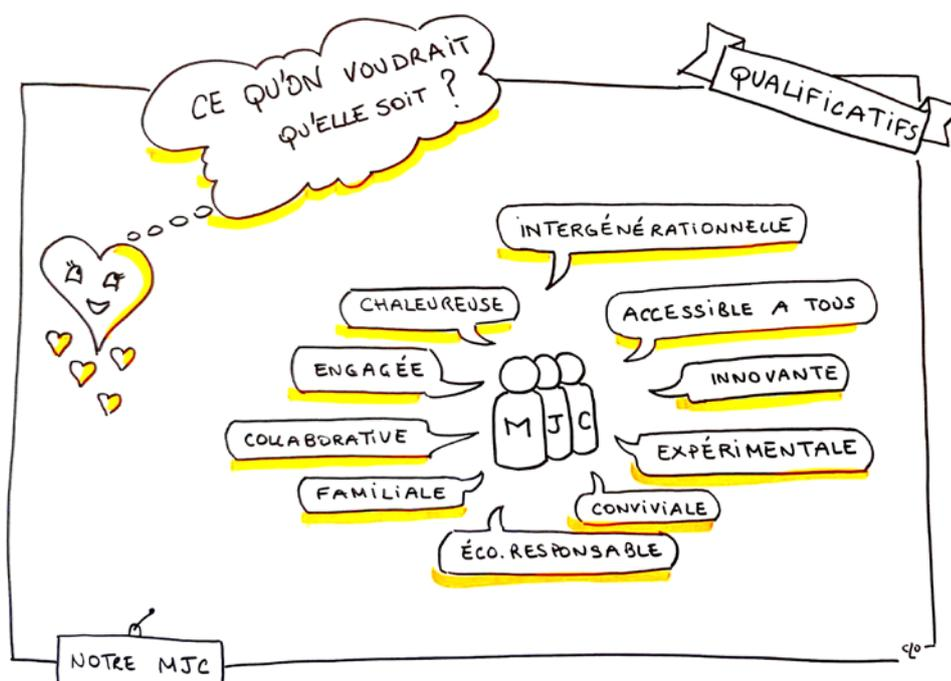 CE QU'ON VOUDRAIT
QU'ELLE SOIT ?
QUALIFICATIFS
INTERGÉNÉRATIONNELLE
CHALEUREUSE
ACCESSIBLE A TOUS
ENGAGÉE
INNOVANTE
COLLABORATIVE
EXPÉRIMENTALE
FAMILIALE
CONVIVIALE
ÉCO.RESPONSABLE
M J C
NOTRE MJC